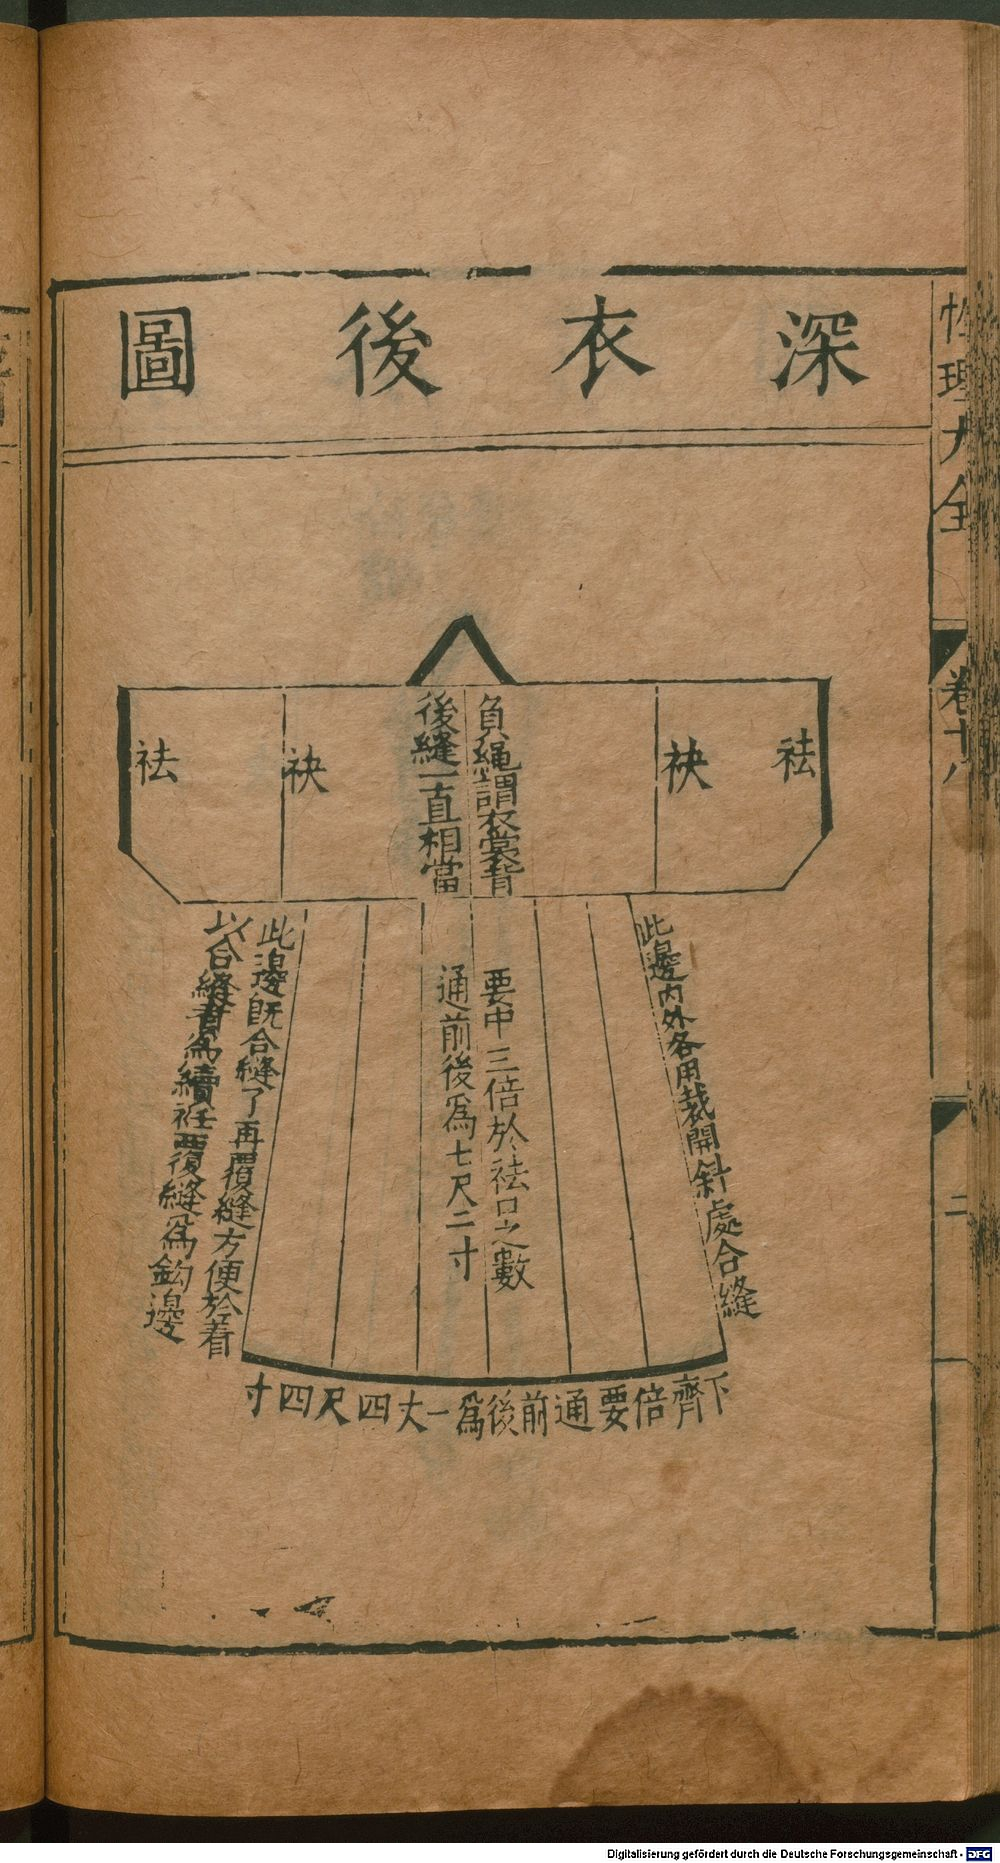 深衣後圖
性理大全
卷十八
二
祛
袂
負繩謂衣裳背
後縫一直相當
袂
祛
此邊內外各用裁開斜處合縫
要中三倍於祛口之數
通前後爲七尺二寸
此邊既合縫了再覆縫方便於着
以合縫者爲續衽覆縫爲鈎邊
下齊倍要通前後爲一丈四尺四寸
Digitalisierung gefördert durch die Deutsche Forschungsgemeinschaft - DFG